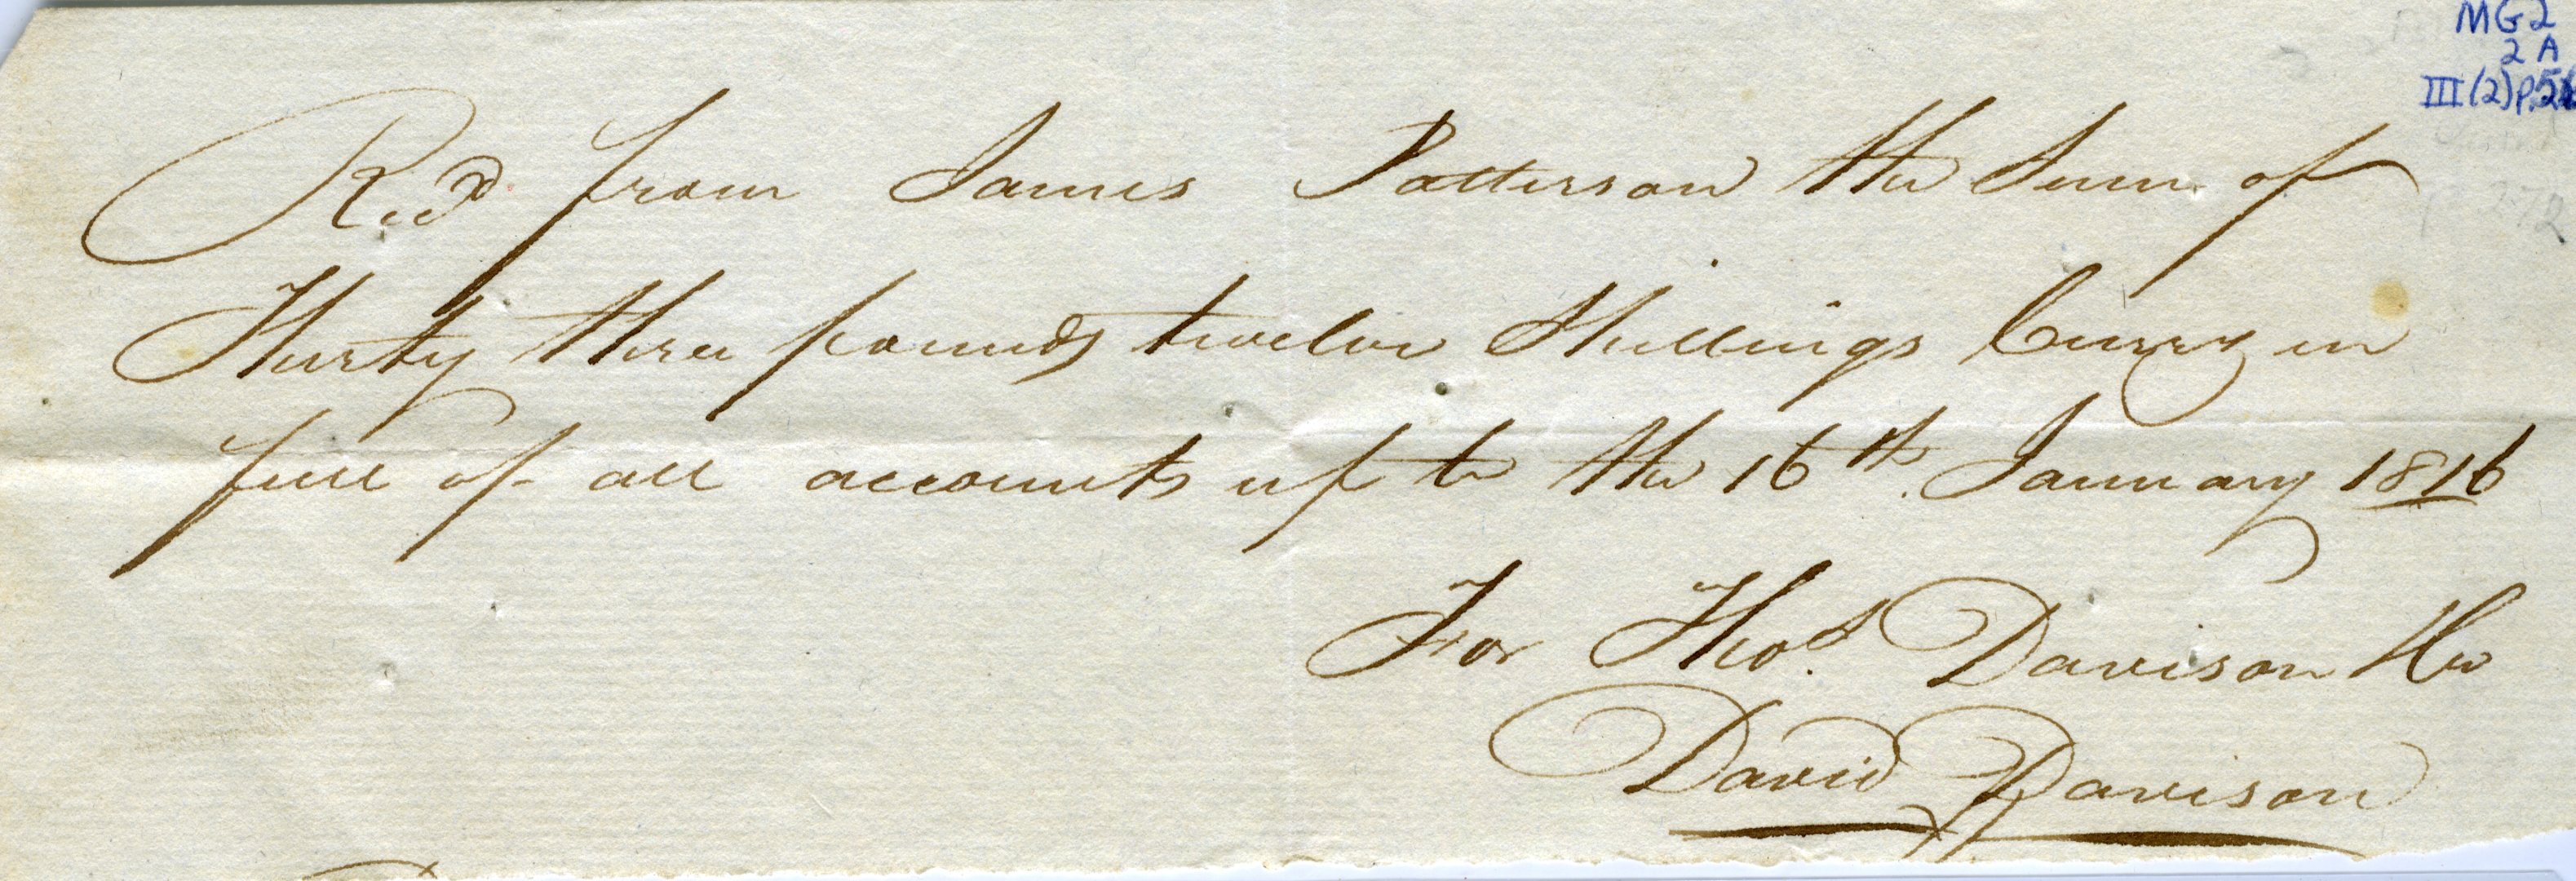 MG2
2 A
III (2) p.
Recd from James Patterson the Sum of
Thirty three pounds twelve Shillings Curry in
full of all accounts up to the 16th January 1816
For Thos Davison
David Davison